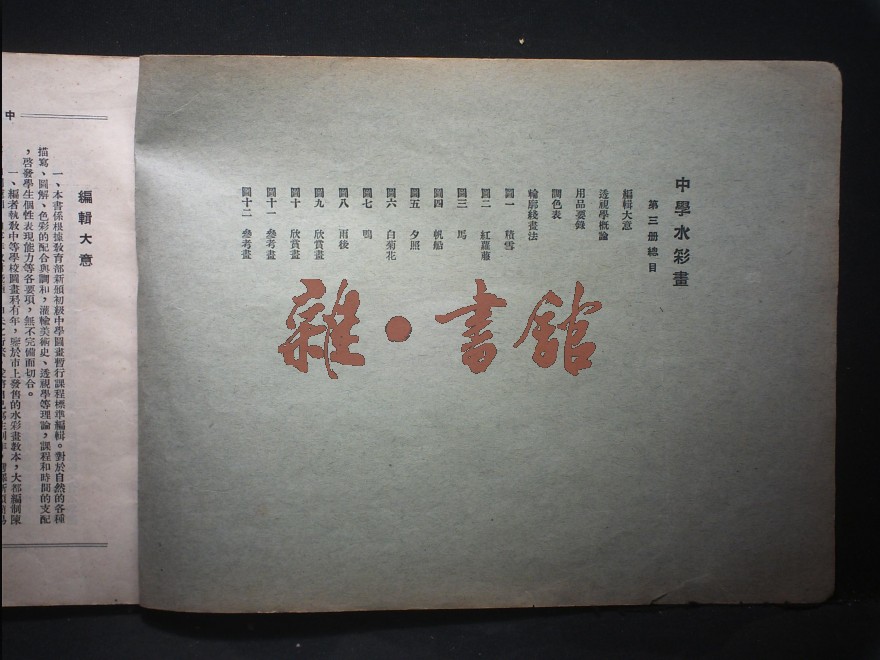 中學水彩畫
第三册總目
編輯大意
透視學概論
用品要錄
調色表
輪廓綫畫法
圖一 積雪
圖二 紅蘿蔔
圖三 馬
圖四 帆船
圖五 夕照
圖六 白菊花
圖七 鴨
圖八 雨後
圖九 欣賞畫
圖十 欣賞畫
圖十一 參考畫
圖十二 參考畫
雜·書館
中
編輯大意
一、本書係根據教育部新頒初級中學圖畫暫行課程標準編輯。對於自然的各種
描寫、圖解、色彩的配合與調和，灌輸美術史、透視學等理論，課程和時間的支配
，啓發學生個性表現能力等各要項，無不完備而切合。
一、編者執教中等學校圖畫科有年，鑒於市上發售的水彩畫教本，大都編制陳